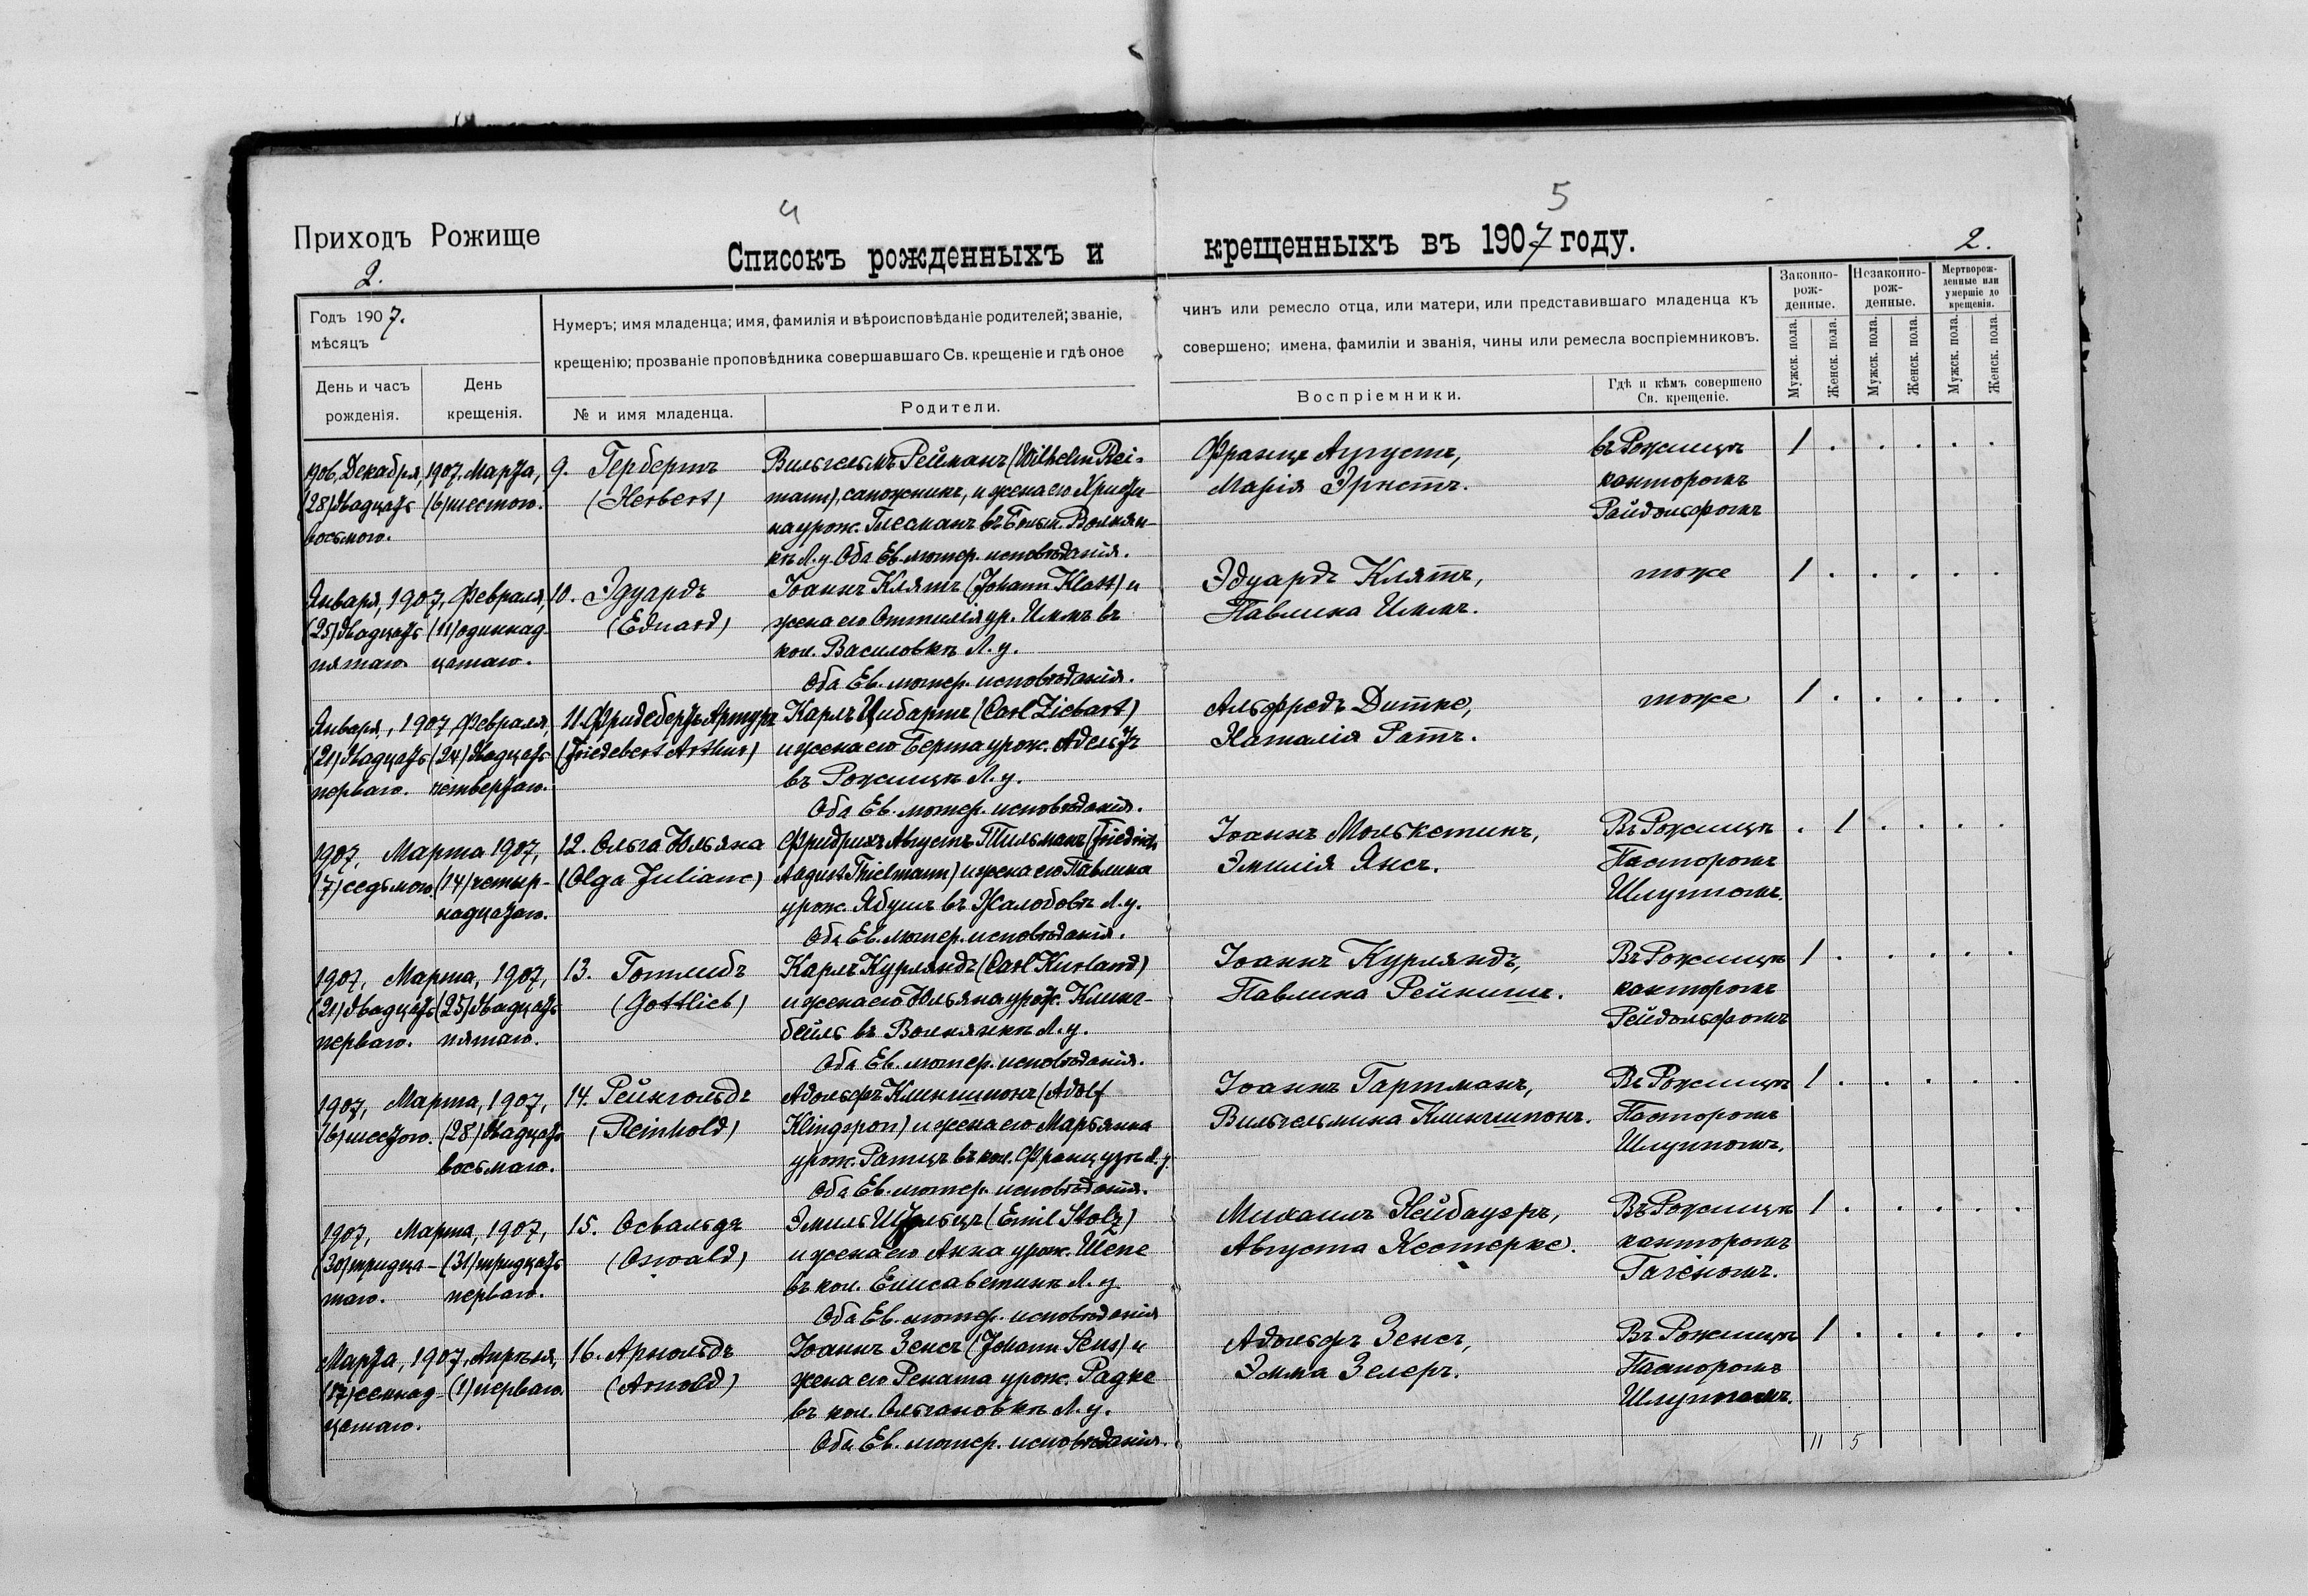 4
5
Приходъ Рожище
2.
Списокъ рожденныхъ и крещенныхъ въ 1907 году.
2.
Годъ 1907.
мѣсяцъ
День и часъ рожденія.
День крещенія.
Нумеръ; имя младенца; имя, фамилія и вѣроисповѣданіе родителей; званіе,
крещенію; прозваніе проповѣдника совершавшаго Св. крещеніе и гдѣ оное
№ и имя младенца.
Родители.
чинъ или ремесло отца, или матери, или представившаго младенца къ
совершено; имена, фамиліи и званія, чины или ремесла воспріемниковъ.
Воспріемники.
Гдѣ и кѣмъ совершено
Св. крещеніе.
Законно-
рож-
денные.
Незаконно-
рож-
денные.
Мертворож-
денные или
умершіе до
крещенія.
Мужск. пола.
Женск. пола.
Мужск. пола.
Женск. пола.
Мужск. пола.
Женск. пола.
1906, Декабря,
(28) двадцать
восьмого.
1907, Марта,
(6) шестого.
9. Гербертъ
(Herbert)
Вильгельмъ Рейманъ (Wilhelm Rei-
mann), сапожникъ, и жена его Христи-
на урож. Глесманъ въ Больш. Волнян-
кѣ Л. у. Оба Ев. лютер. исповѣданія.
Францъ Августъ,
Марія Эрнстъ.
въ Рожищѣ
канторомъ
Рейдольфомъ
1 . . . . .
Января, 1907, Февраля,
(25) двадцать
пятаго.
(11) одиннад-
цатаго.
10. Эдуардъ
(Eduard)
Іоаннъ Клятъ (Johann Klatt) и
жена его Оттилія ур. Иммъ въ
кол. Василовкѣ Л. у.
Оба Ев. лютер. исповѣданія.
Эдуардъ Клятъ,
Павлина Иммъ.
тоже
1 . . . . .
Января, 1907, Февраля,
(21) двадцать
перваго.
(24) двадцать
четвертаго.
11. Фридебертъ Артуръ
(Friedebert Arthur)
Карлъ Цибартъ (Carl Ziebart)
и жена его Берта урож. Адельтъ
въ Рожищѣ Л. у.
Оба Ев. лютер. исповѣданія.
Альфредъ Дитке,
Наталія Ратъ.
тоже
1 . . . . .
1907, Марта 1907,
(7) седьмого.
(14) четыр-
надцатаго.
12. Ольга Юльяна
(Olga Juliane)
Фридрихъ Августъ Тильманъ (Friedrich
August Thielmann) и жена его Павлина
урож. Ябушъ въ Жалобовѣ Л. у.
Оба Ев. лютер. исповѣданія.
Іоаннъ Молькетинъ,
Эмилія Янсъ.
Въ Рожищѣ
Пасторомъ
Шлуппомъ.
. 1 . . . .
1907, Марта, 1907,
(21) двадцать
перваго.
(25) двадцать
пятаго.
13. Готлибъ
(Gottlieb)
Карлъ Курляндъ (Carl Kurland)
и жена его Юльяна урож. Клинг-
бейль въ Волнянкѣ Л. у.
Оба Ев. лютер. исповѣданія.
Іоаннъ Курляндъ,
Павлина Рейнишъ.
Въ Рожищѣ
канторомъ
Рейдольфомъ
1 . . . . .
1907, Марта, 1907,
(6) шестого.
(28) двадцать
восьмаго.
14. Рейнгольдъ
(Reinhold)
Адольфъ Клингшпонъ (Adolf
Klingspon) и жена его Марьянна
урож. Ратцъ въ кол. Французѣ Л. у.
Оба Ев. лютер. исповѣданія.
Іоаннъ Гартманъ,
Вильгельмина Клингшпонъ.
Въ Рожищѣ
Пасторомъ
Шлуппомъ.
1 . . . . .
1907, Марта, 1907,
(30) тридца-
таго.
(31) тридцать
перваго.
15. Освальдъ
(Oswald)
Эмиль Штольцъ (Emil Stolz)
и жена его Анна урож. Шепе
въ кол. Елисаветинѣ Л. у.
Оба Ев. лютер. исповѣданія
Михаилъ Нейбауэръ,
Августа Кестерке.
Въ Рожищѣ
канторомъ
1 . . . . .
Марта, 1907, Апрѣля,
(17) семнад-
цатаго.
(1) перваго.
16. Арнольдъ
(Arnold)
Іоаннъ Зенсъ (Johann Sens) и
жена его Рената урож. Радке
въ кол. Ольгановкѣ Л. у.
Оба Ев. лютер. исповѣданія.
Адольфъ Зенсъ,
Эмма Зелеръ.
Въ Рожищѣ
Пасторомъ
Шлуппомъ.
1 . . . . .
11 5